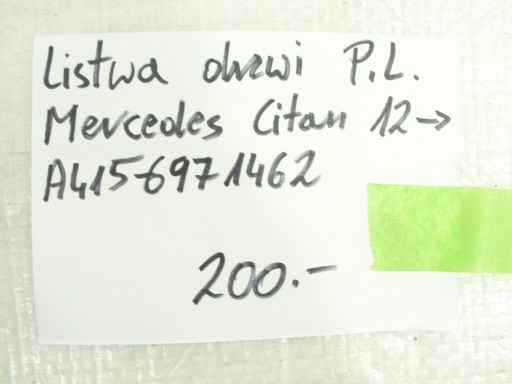 Listwa drzwi P.L.
Mercedes Citan 12->
A4156971462
200.-